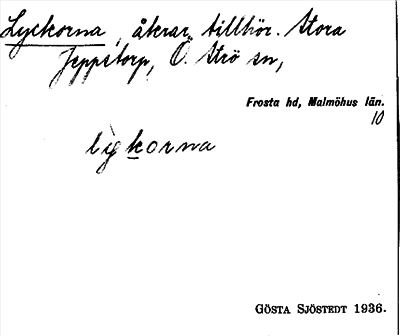 Lyckorna, åkrar, tillhör. Stora
Jeppstorp, Ö. Strö sn,
Frosta hd, Malmöhus län.
10
lykorna
GÖSTA SJÖSTEDT 1936.